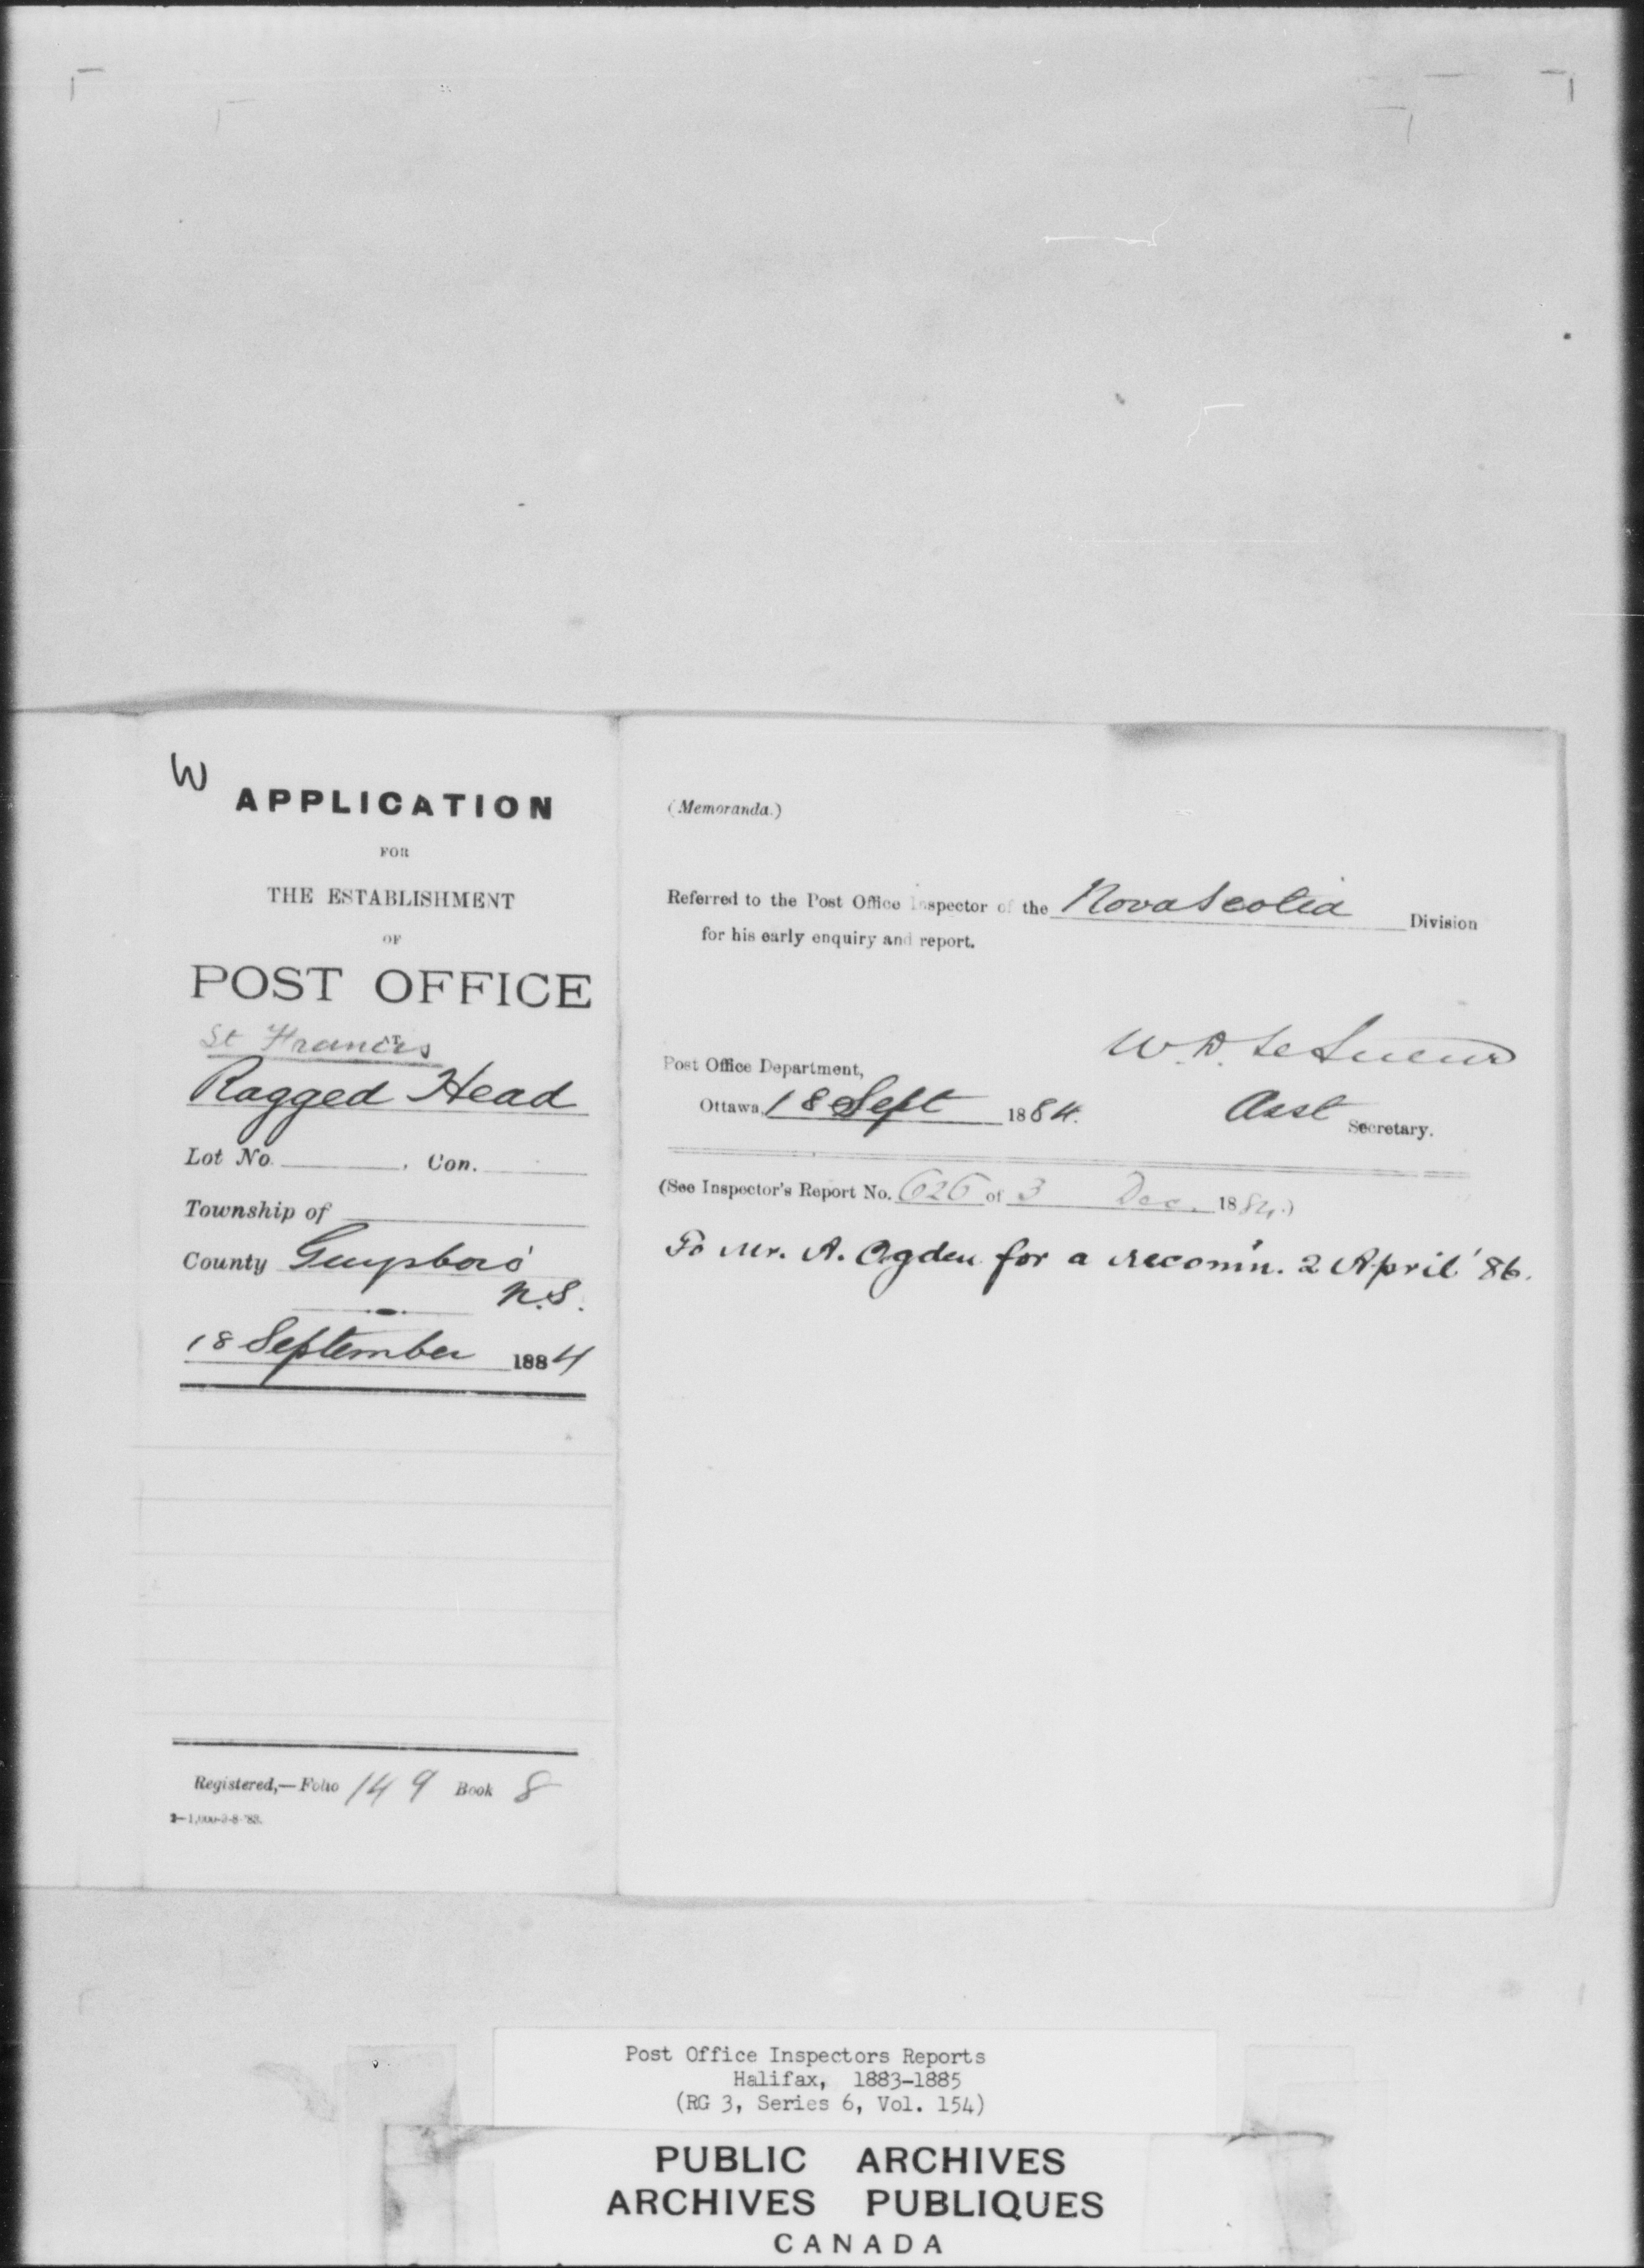 W
APPLICATION
FOR
THE ESTABLISHMENT
OF
POST OFFICE
St Francis
Ragged Head
Lot No. , Con.
Township of
County Guysboro'
N.S.
18 September 1884
Registered,—Folio 149 Book 8
2—1,000-3-8-'83.
(Memoranda.)
Referred to the Post Office Inspector of the Nova Scotia Division
for his early enquiry and report.
W. D. LeSueur
Post Office Department,
Ottawa, 18 Sept 1884.
Asst Secretary.
(See Inspector's Report No. 626 of 3 Dec. 1884.)
To Mr. A. Ogden for a recom'n. 2 April '86.
Post Office Inspectors Reports
Halifax, 1883-1885
(RG 3, Series 6, Vol. 154)
PUBLIC ARCHIVES
ARCHIVES PUBLIQUES
CANADA